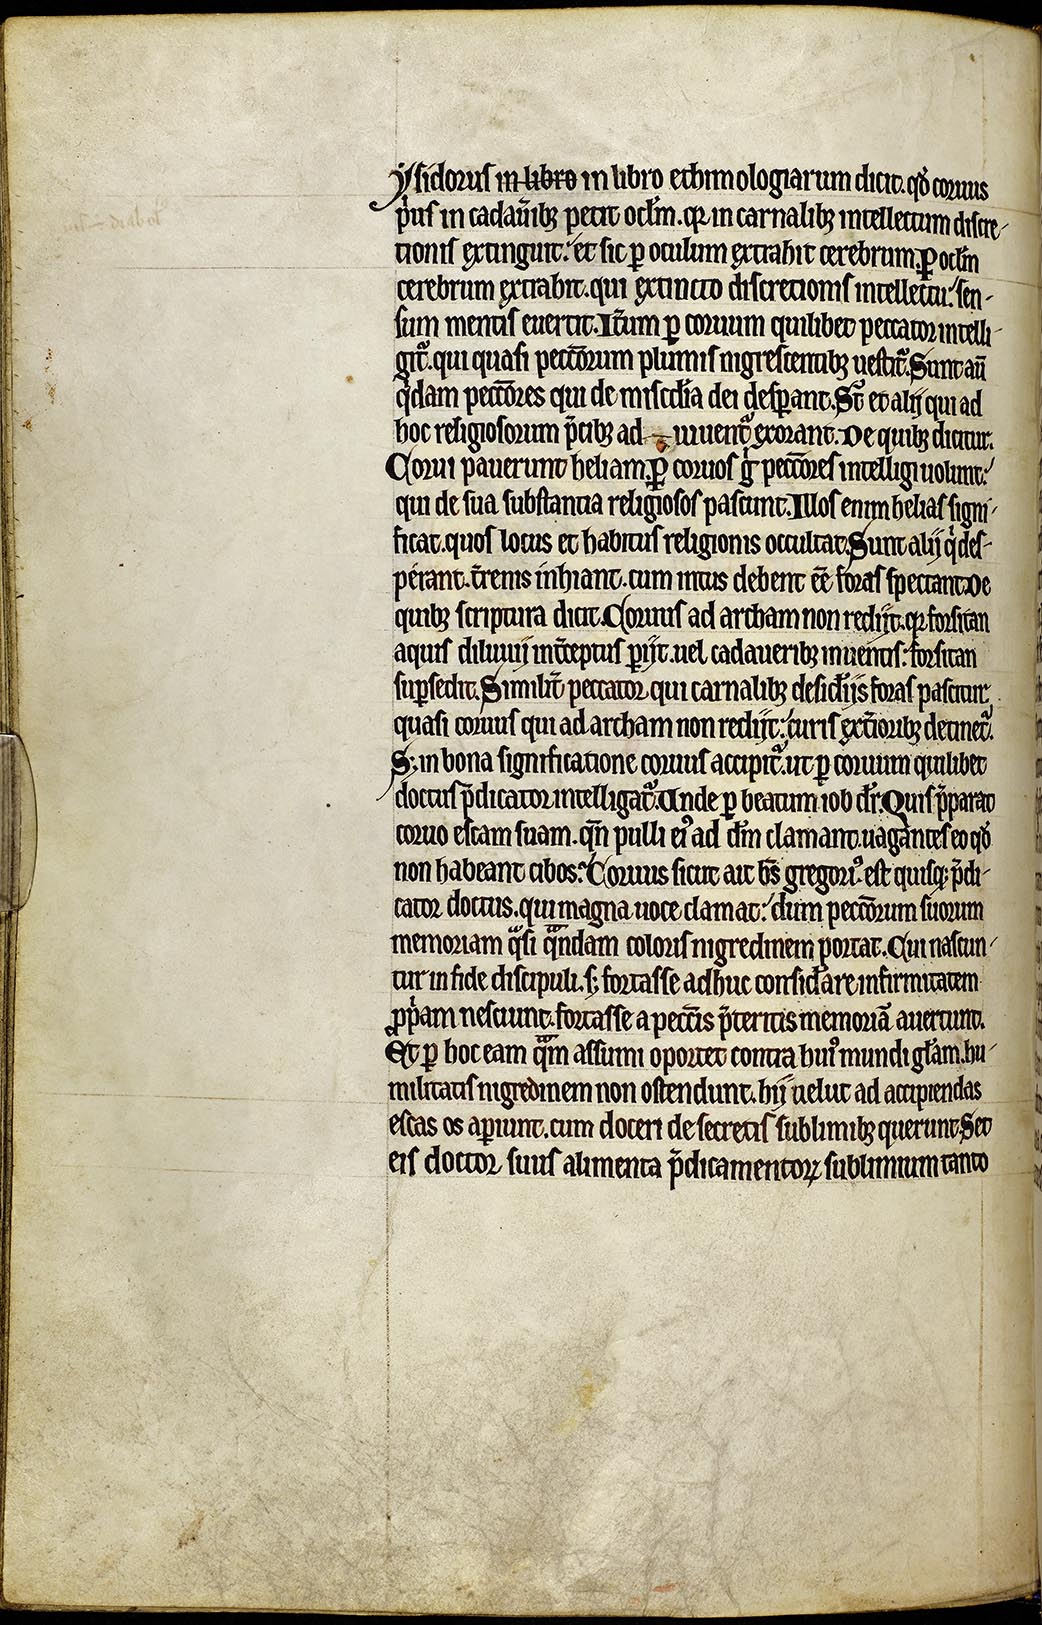 ysidorus in libro in libro ethimologiarum dicit. qđ coruus
p̱us in cadau̅ibꝫ petit ocl̅m. qꝛ in carnalibꝫ intellectum discre-
tionis extinguit. et sic ꝑ oculum extrahit cerebrum. Ꝑ ocl̅m
cerebrum extrahit. qui extincto discretionis intellectu. sen-
sum mentis euertit. It̅um ꝑ coruum quilibet peccator intelli-
git᷑. qui quasi pecc̅orum plumis nigrescentibꝫ uestit᷑. Sunt au̅
qͥdam pecc̅ores qui de miscd̅ia dei desꝑant. St̅ et alij qui ad
hoc religiosorum p̅cibꝫ ad iuuent᷑ exorant. De quibꝫ dicitur.
Corui pauerunt heliam. Ꝑ coruos gͥ pecc̅ores intelligi uolunt.
qui de sua substantia religiosos pascunt. Illos enim helias signi-
ficat. quos locus et habitus religionis occultat. Sunt alij qͥ des-
perant. t̅renis inhiant. cum intus debent ee̅ foras spectant. De
quibꝫ scriptura dicit. Coruus ad archam non redijt. qꝛ forsitan
aquis diluuij int̅ceptus ꝑijt. uel cadaueribꝫ inuentis: forsitan
suꝑsedit. Similit̅ peccator qui carnalibꝫ desid̅ijs foras pascitur,
quasi coruus qui ad archam non redijt: curis ext̅ioribꝫ detinet᷑.
Sꝫ in bona significatione coruus accipit᷑. ut ꝑ coruum quilibet
doctus p̅dicator intelligat᷑. Unde ꝑ beatum iob dr̅. Quis p̅parat
coruo escam suam. qn̅ pulli eiꝰ ad dm̅ clamant. uagantes eo qđ
non habeant cibos. Coruus sicut ait bs̅ gregoriꝰ. est quisqꝫ p̅di-
cator doctus. qui magna uoce clamat. dum pecc̅orum suorum
memoriam qᷓsi qᷓndam coloris nigredinem portat. Cui nascun-
tur in fide discipuli. sꝫ fortasse adhuc consid̅are infirmitatem
ꝓpͥam nesciunt. fortasse a pecc̅is p̅teritis memoria̅ auertunt.
Et ꝑ hoc eam qᷓm assumi oportet contra huiꝰ mundi gl̅am. hu-
militatis nigredinem non ostendunt. hij uelut ad accipiendas
escas os aꝑiunt. cum doceri de secretis sublimibꝫ querunt. Set
eis doctor suus alimenta p̅dicamentoꝝ sublimium tanto